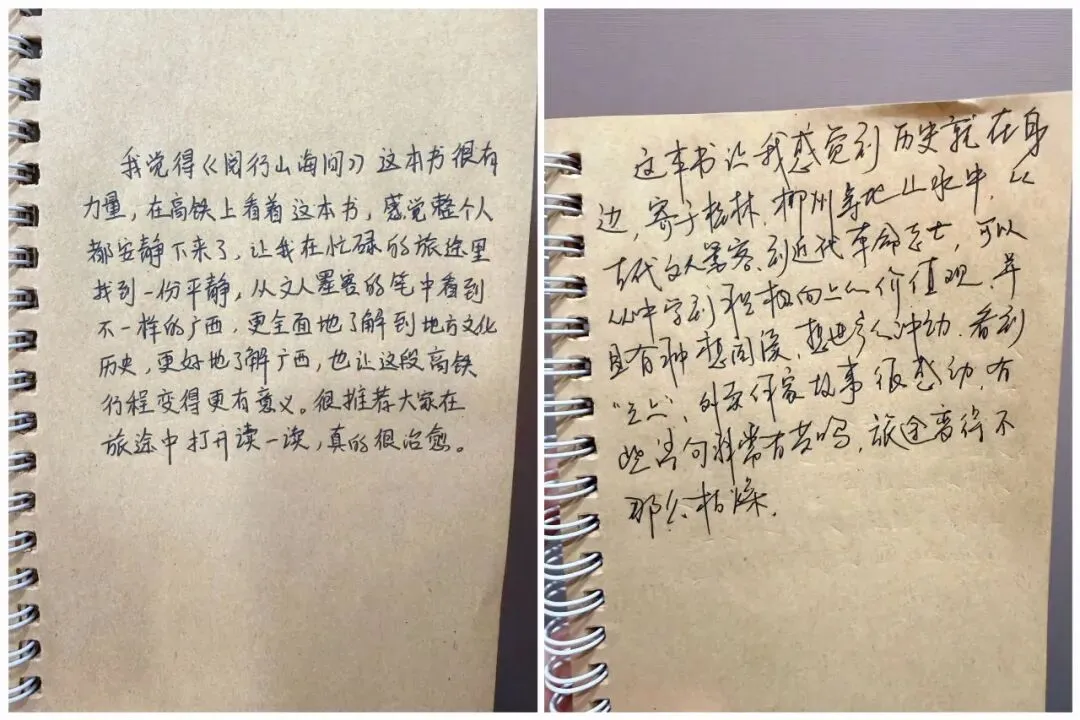 我觉得《阅行山海间》这本书很有
力量，在高铁上看着这本书，感觉整个人
都安静下来了，让我在忙碌的旅途里
找到一份平静，从文人墨客的笔中看到
不一样的广西，更全面地了解到地方文化
历史，更好地了解广西，也让这段高铁
行程变得更有意义。很推荐大家在
旅途中打开读一读，真的很治愈。
这本书让我感觉到历史就在身
边，寄于桂林、柳州等地山水中，从
古代文人墨客、到近代革命志士，可以
从中学到积极向上的价值观，并
且有种想阅读、想
看到
作家故事很感动，有
些语句非常有共鸣，旅途变得不
那么枯燥。